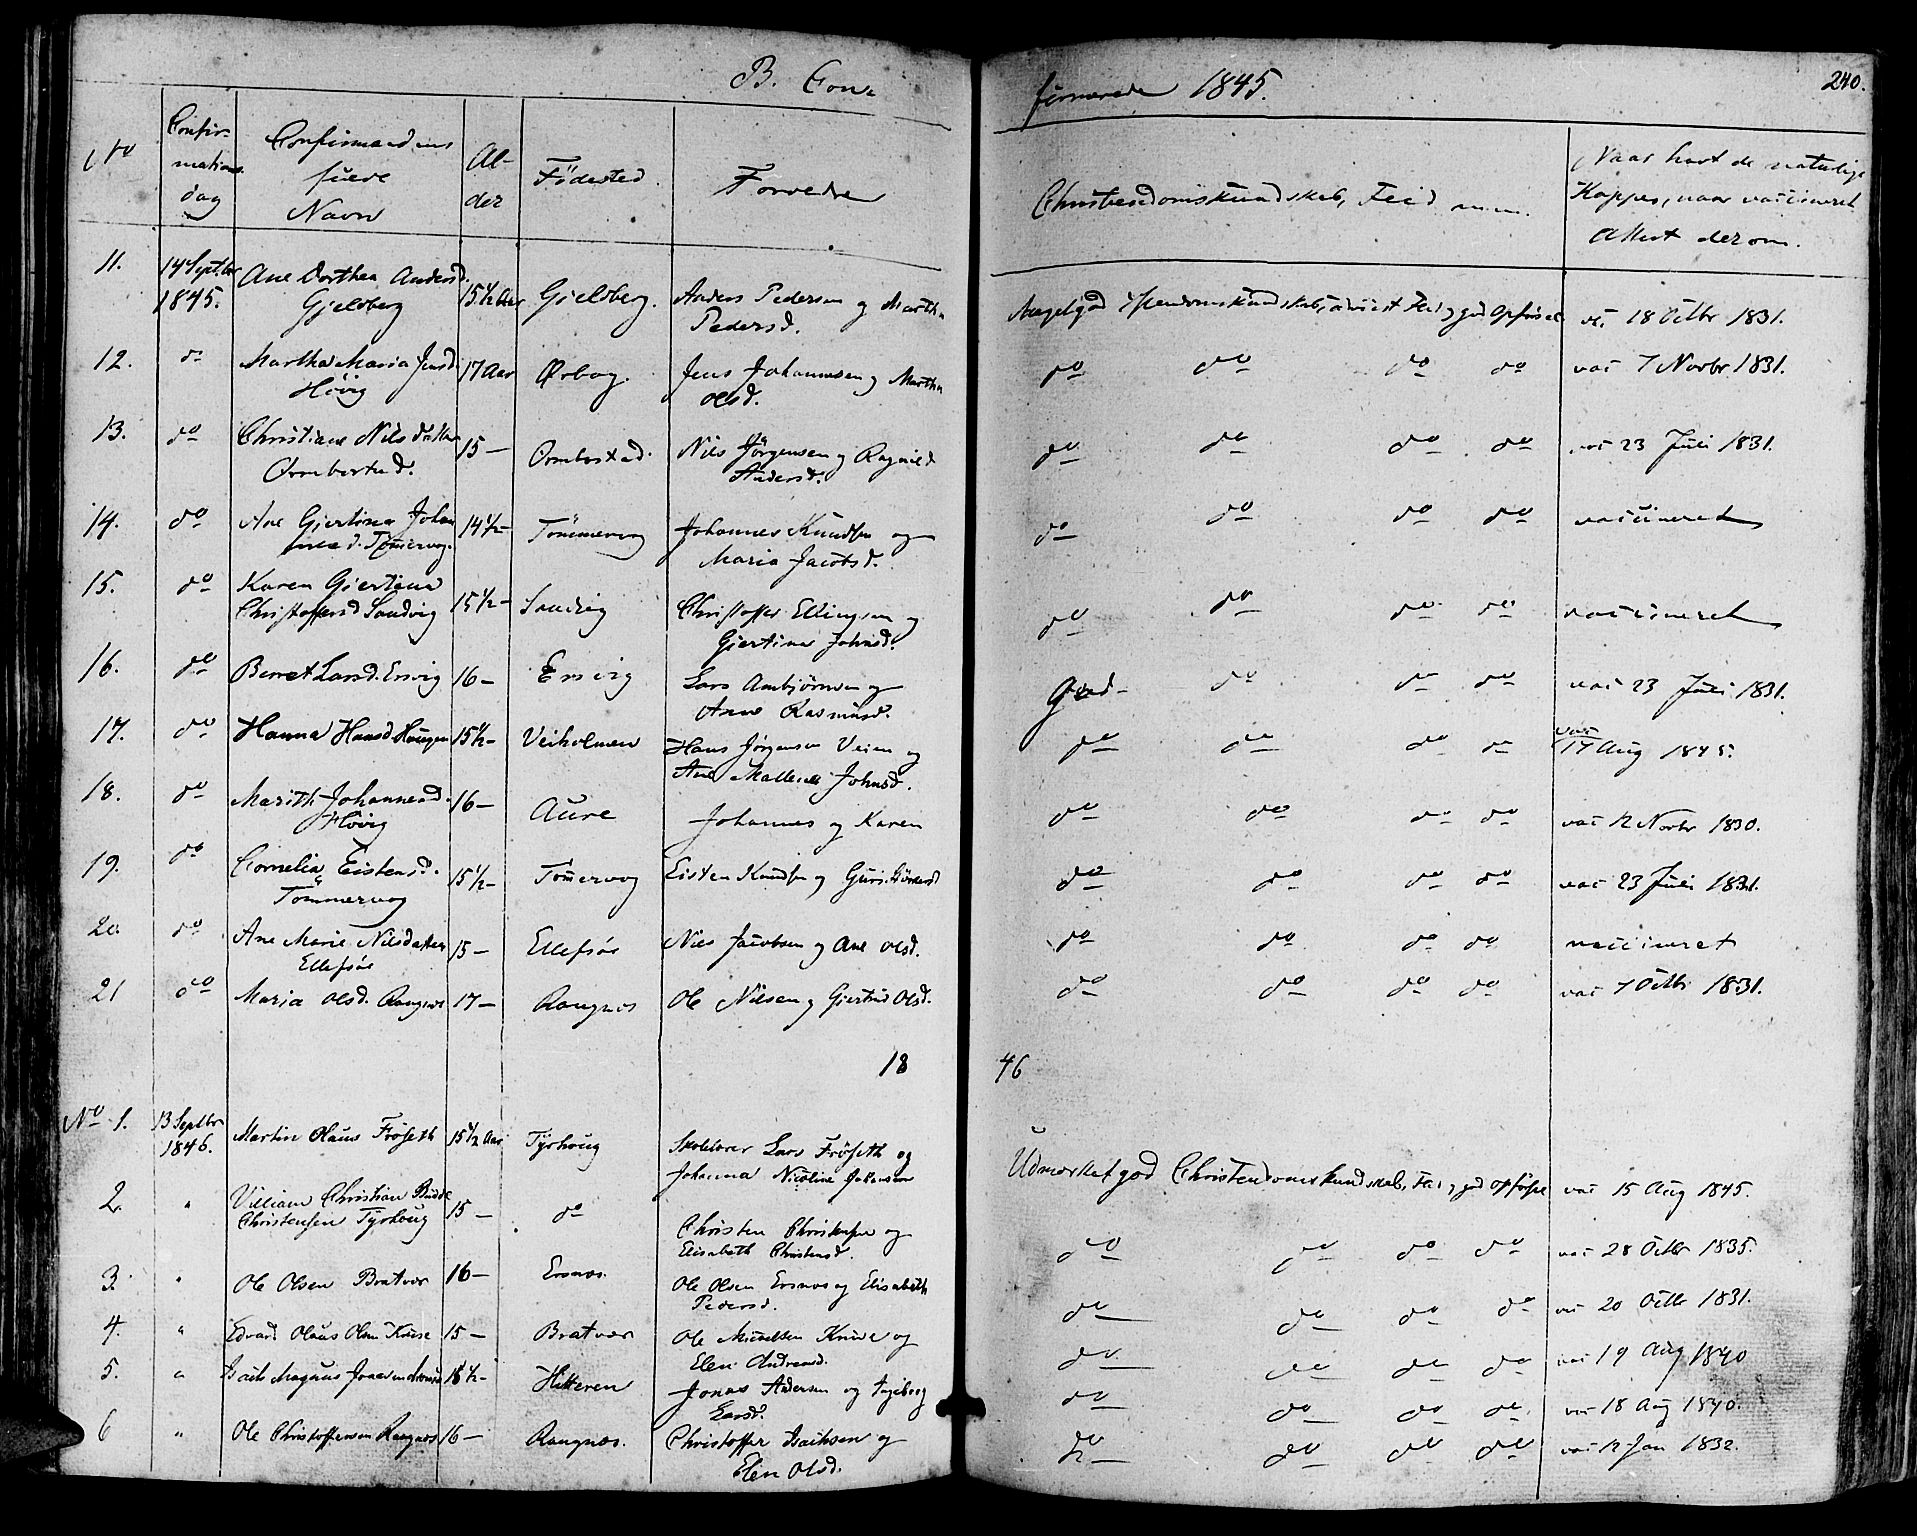 B. Con-
firmerede 1845.
240.
No
Confir-
mations
dag
Confirmandens
fulde
Navn
Al-
der
Födested.
Forældre
Christendomskundskab, Flid m.m.
Naar havt de naturlige
Kopper, naar vaccineret
Attest derom.
11. 14 Septbr Ane Dorthea Andersd.
1845. Gjelsberg 15 1/2 Aar Gjelsberg. Anders Pedersen og Martha
Pedersd.
Meget god Christendomskundskab, udviist Flid og god Opførsel v. 18 Octbr 1831.
12. do Martha Maria Jensd. 17 Aar Ørbog. Jens Johannesen og Martha
Høvig Olsd.
do do do do vac 7 Novbr 1831.
13. do Christiane Nilsdatter 15 - Ormbostad. Nils Jørgensen og Ragnild
Ormbostad. Andersd.
do do do do vac 23 Juli 1831.
14. do Ane Gjertina Johan 14 1/2 - Tömmervog Johannes Knudsen og
nesd. Tömervog. Maria Jacobsd.
do do do do vaccineret
15. do Karen Gjertina
Christoffersd Sandvig 15 1/2 - Sandvig Christoffer Ellingsen og
Gjertina Johnsd.
do do do do vaccineret
16. do Beret Larsd. Ersvig 16 - Ersvig Lars Ambjörnsen og
Ane Rasmusd.
God - do do do vac 23 Juli 1831.
17. do Hanna Hansd Haugen 15 1/2 - Veiholmen Hans Jørgensen Veien og
Ane Malene Johnsd.
do do do do vac
17 Aug 1845.
18. do Marith Johannesd. 16 - Aure Johannes og Karen
Høvig
do do do do vac 12 Novbr 1830.
19. do Cornelia Eistensd. 15 1/2 - Tömervog Eisten Knudsen og Guri
Tömmervog
do do do do vac 23 Juli 1831.
20. do Ane Marie Nilsdatter 15 - Ellefsös Nils Jacobsen og Ane Olsd.
Ellefsös
do do do do vaccineret
21 do Maria Olsd. Rangnes 17 - Rangnæs Ole Nilsen og Gjertrud Olsd.
do do do do vac 7 Octbr 1831.
18 46
No 1. 13 Septbr
1846. Martin Olaus Fröseth 15 1/2 Aar Tyrhoug Skolelærer Lars Fröseth og
Johanna Nicoline Johansen
Udmærket god Christendomskundskab, Flid og god opførsel vac 15 Aug 1845.
2. " Villiam Christian Budde
Christensen Tyrhoug 15 - do Christen Christensen og
Elisabeth Christensd.
do do do do vac 28 Octbr 1835.
3. " Ole Olsen Bratvær 16 - Ersnæs. Ole Olsen Ersnæs og Elisabeth
Pedersd.
do do do do vac 20 Octbr 1831.
4. " Edvard Olaus Olsen Knise 15 - Bratvær Ole Mikkelsen Knise og
Elen Andreasd.
do do do do vac 19 Aug 1840
5. " Isach Magnus Jonasen 18 1/2 - Hitteren Jonas Andersen og Ingeborg
Larsd.
do do do do vac 18 Aug 1840.
6 " Ole Christoffersen Rangnæs 16 - Rangnæs. Christoffer Isachsen og
Elen Olsd.
do do do do vac 12 Jan 1832.